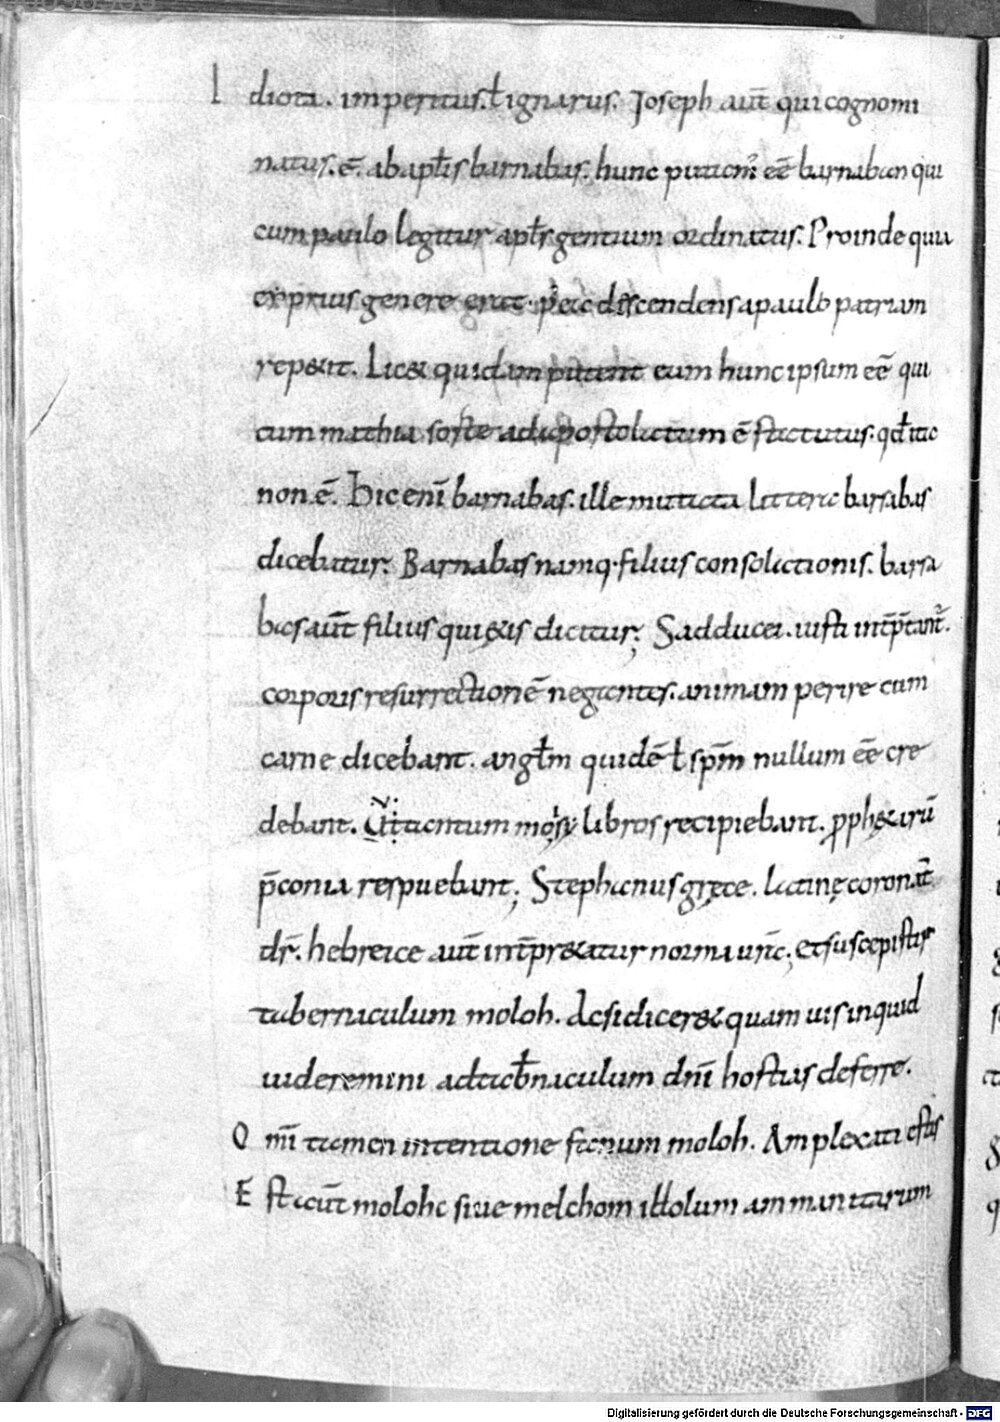 I diota. imperitus. ł ignarus. Joseph aut̄ qui cognomi
natus. ē. ab apłis barnabas. hunc putam' eē barnaban qui
cum paulo legitur apłs gentium ordinatus. Proinde quia
cyprius genere erat. discendens a paulo patriam
repetit. Licet quidam putent eum hunc ipsum eē qui
cum mathia sorte ad apostolatum ē statutus. qđ ita
non. ē. Hic enī barnabas. ille mutata littera barsabas
dicebatur. Barnabas namq. filius consolationis. barsa
bas aut̄ filius quietis dicitur; Sadducei. iusti int̄p̄tant̃.
corporis resurrectionē negantes. animam perire cum
carne dicebant. angłm quidē ł sp̄m nullum eē cre
debant. mosy libros recipiebant. pphetarū
p̄conia respuebant; Stephanus gręce. latinę coronat̄
dr̄. hebreice aut̄ int̄pretatur norma ur̄a; et suscepistis
tabernaculum moloh. Acsi diceret quam uis inquid
uideremini ad tab̄naculum dnī hostias deferre.
O mī tamen intentione fanum moloh. Amplexati estis
E st aut̄ moloh siue melchom idolum ammanitarum
Digitalisierung gefördert durch die Deutsche Forschungsgemeinschaft - DFG